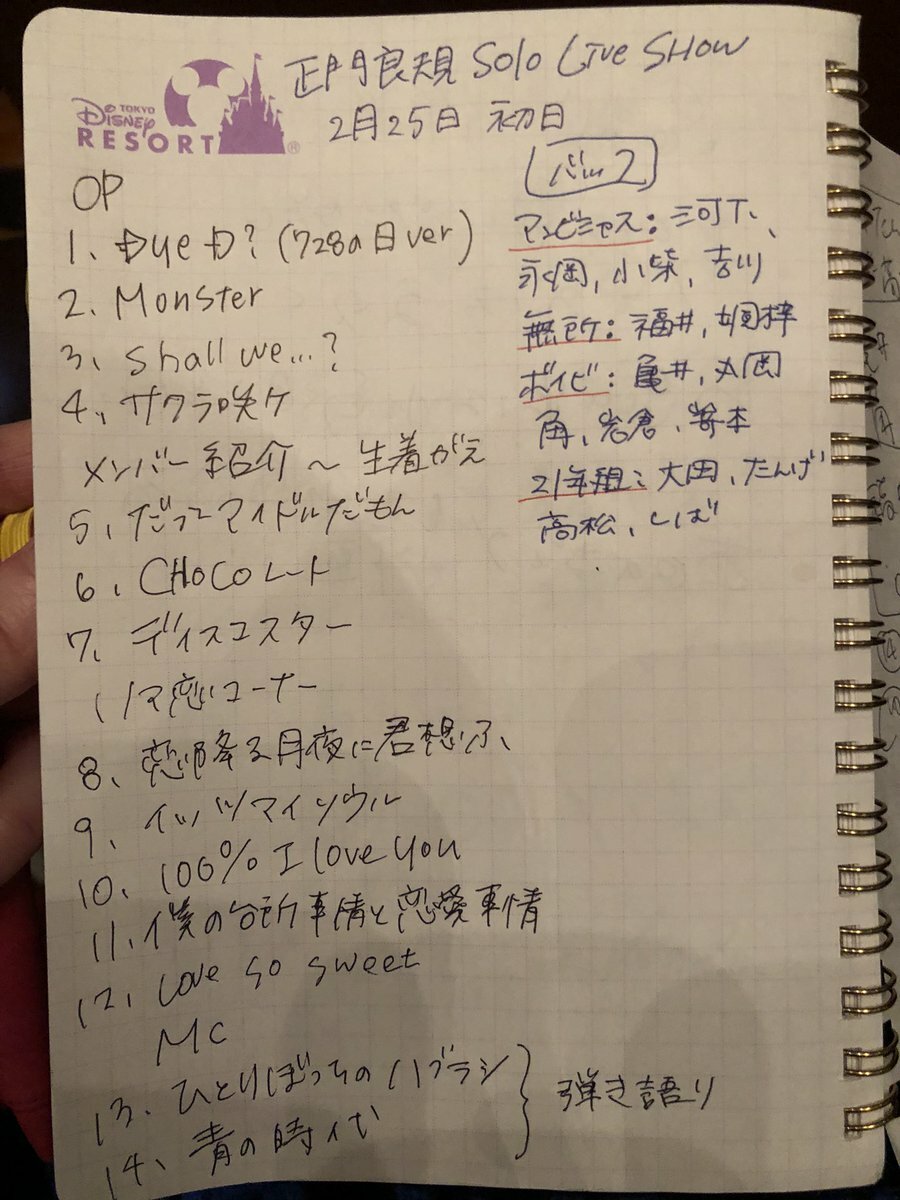 TOKYO
Disney
RESORT®
正門良規 Solo Live SHOW
2月25日 初日
OP
1、Dye D? (728の日ver)
2、Monster
3、Shall we…?
4、サクラ咲ケ
メンバー紹介〜生着がえ
5、だってアイドルだもん
6、CHOCOレート
7、ディスコスター
リア恋コーナー
8、恋降る月夜に君想ふ、
9、イッツマイソウル
10、100% I love you
11、僕の台所事情と恋愛事情
12、Love so sweet
MC
13、ひとりぼっちのハブラシ
14、青の時代
弾き語り
バック
アンビシャス：三河下、
永岡，小柴，吉川
無所：福井，嶋﨑梓
ボイビ：亀井，丸岡
角、岩倉、
21年組：大岡、たんげ
高松、しば